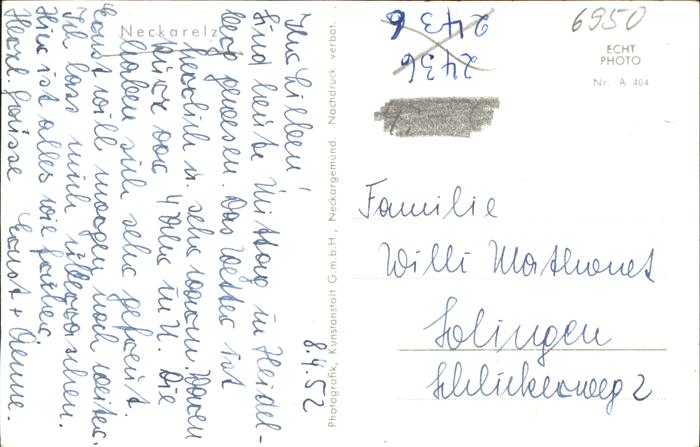 Neckarelz
8.4.52
Ihr Lieben!
Sind heute Mittag in Heidel-
berg gewesen. Das Wetter ist
herrlich u. sehr warm. Waren
kurz vor 4 Uhr in N. Die
haben sich sehr gefreut.
Ernst will morgen noch weiter.
Ich lass mich überraschen.
Hier ist alles wie früher.
Herzl. Grüsse Ernst +
Photografik, Kunstanstalt G.m.b.H., Neckargemünd. Nachdruck verbot.
2436
2436
6950
ECHT
PHOTO
Nr. A 404
Familie
Willi
Solingen
Schlickerweg 2